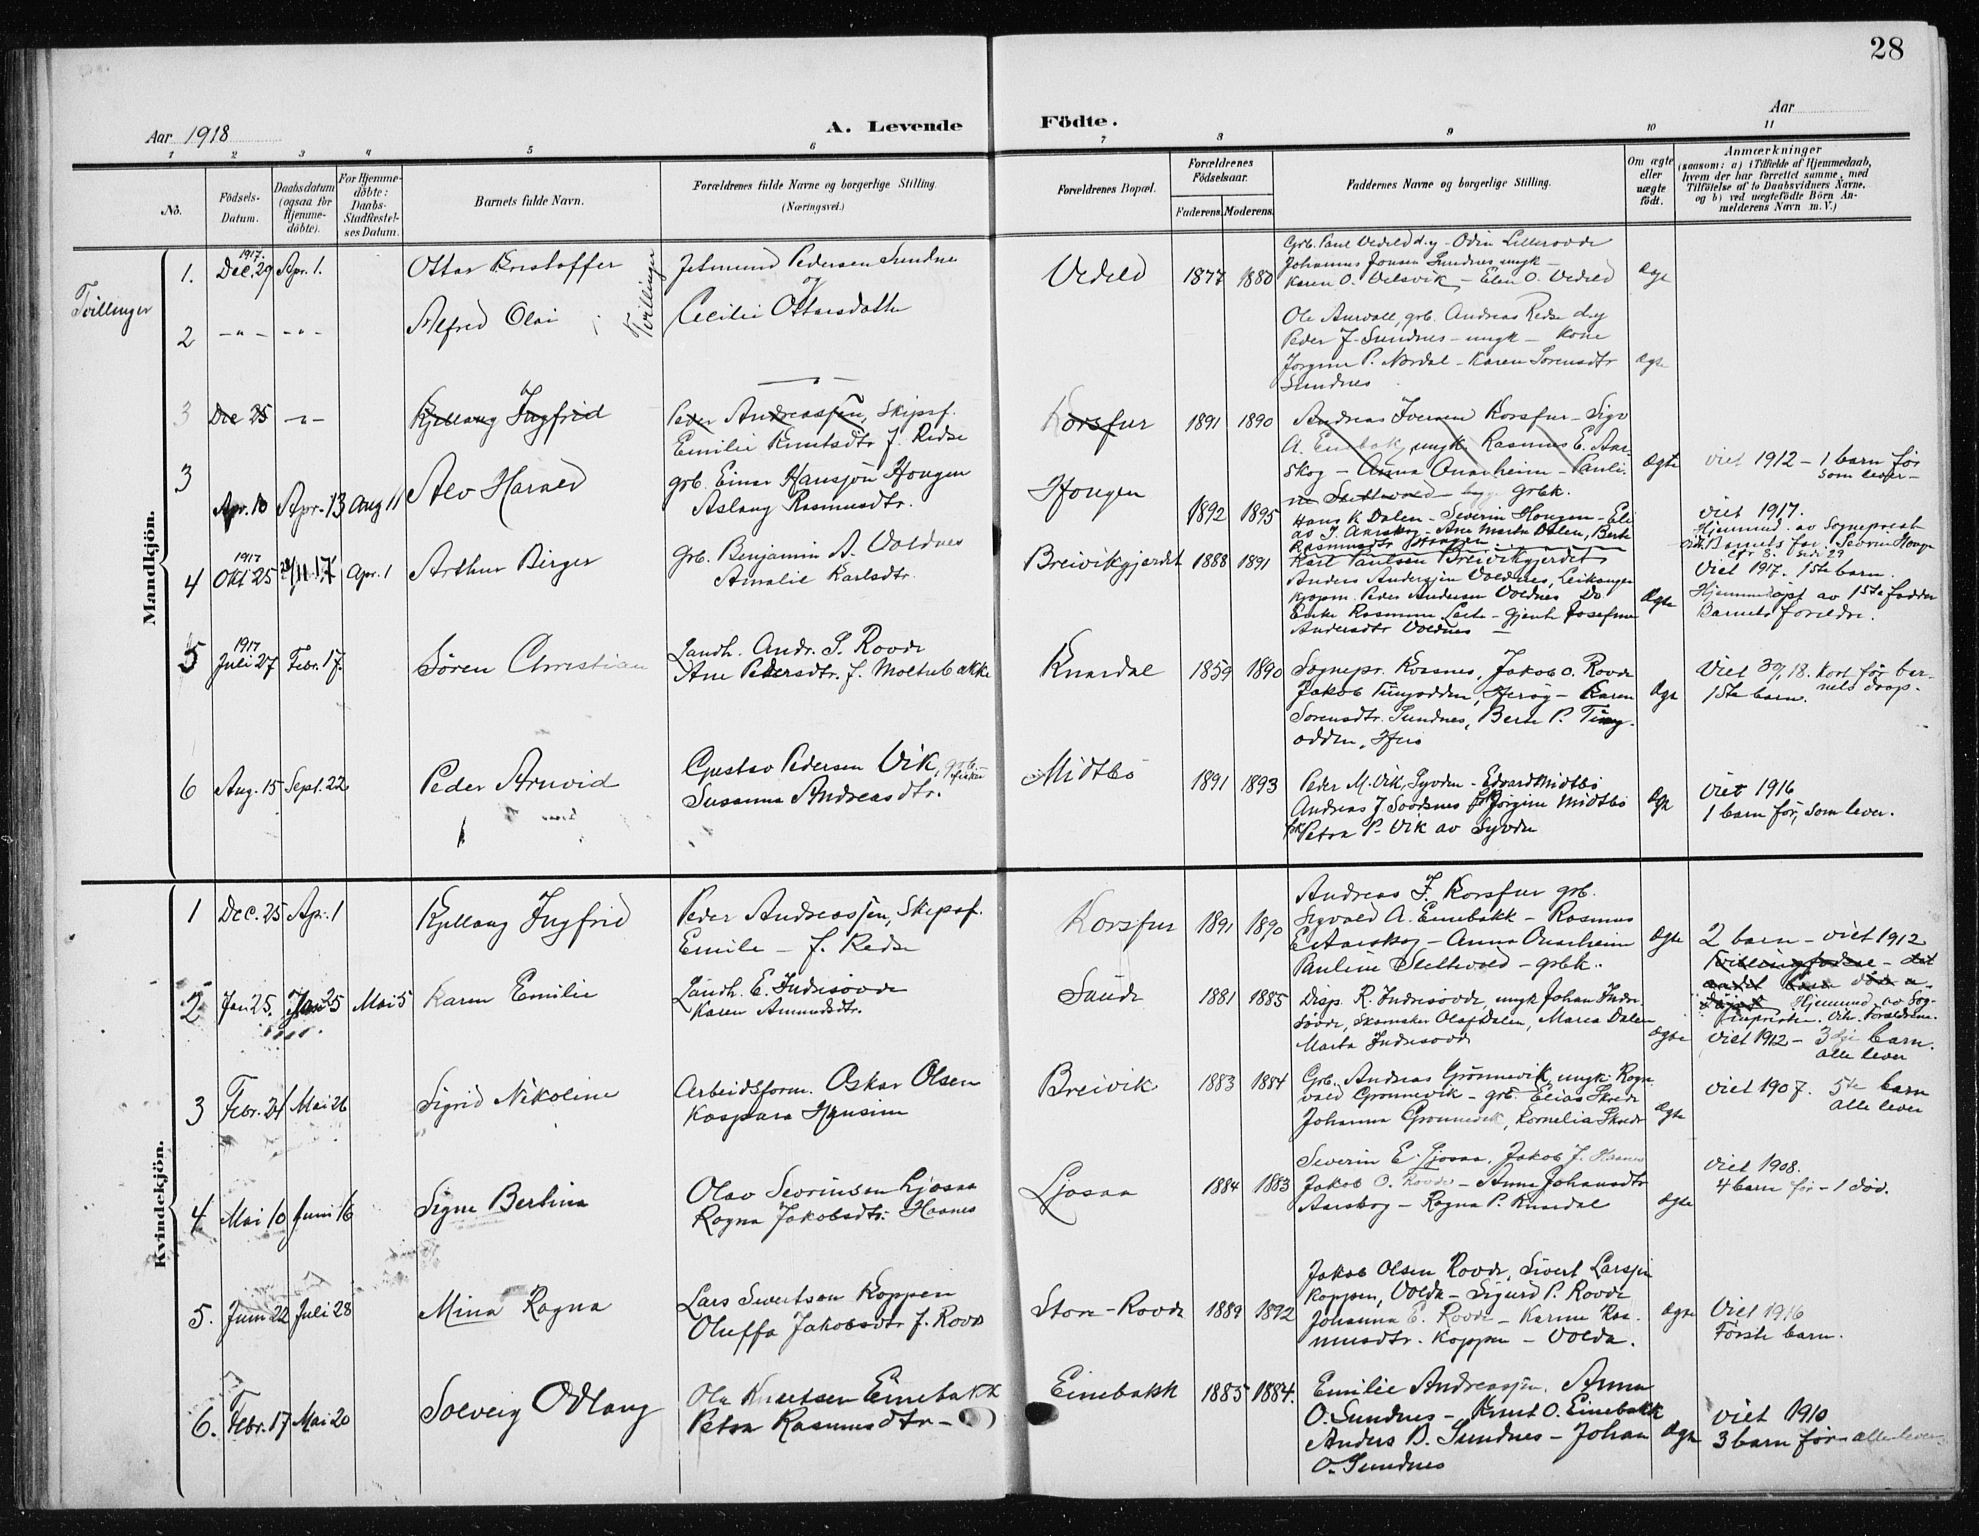 28
Aar 1918
A. Levende
Födte.
Aar
1 2 3 4 5 6 7 8 9 10 11
No.
Födsels-Datum.
Daabsdatum (ogsaa for Hjemme-döbte).
For Hjemme-döbte: Daabs-Stadfæstel-ses Datum.
Barnets fulde Navn.
Forældrenes fulde Navne og borgerlige Stilling.
(Næringsvei.)
Forældrenes Bopæl.
Forældrenes Födselsaar.
Faderens. Moderens.
Faddernes Navne og borgerlige Stilling.
Om ægte eller uægte födt.
Anmærkninger
(saasom: a) i Tilfælde af Hjemmedaab, hvem der har forrettet samme, med Tilföielse af to Daabsvidners Navne, og b) ved uægtefödte Börn An-melderens Navn m. V.)
Mandkjön.
Tvillinger
1. 1917. Dec. 29 Apr. 1.
Ottar Kristoffer
Tvillinger
Jetmund Pedersen Sundnes
og
Vedeld 1877 1880
Grb. Paul Vedeld d.y - Odin Lillerovde
Johannes Jonsen Sundnes ungk -
Karen O. Velsvik - Elen O. Vedeld
ægte
2 -"- -"-
Alfred Olai
Cecilie Ottarsdatter
Ole Aurvoll, grb. Andreas Redse d.y
Peder J. Sundnes - ungk - Kone
Jorgine P. Nordal - Karen Sorensdtr
Sundnes
ægte
3 Dec 25 -"-
Kjellaug Ingfrid
Peder Andreassen, Skipsf.
Emilie Knutsdtr f. Redse
Korsfur 1891 1890
Andreas Iversen Korsfur - Sigv
A. Einebak, ungk. Rasmus E. Aar-
skog - Anna Onarheim - Pauli-
ne Stettvold - grbk.
ægte
viet 1912 - 1 barn før
som lever -
3 Apr. 10 Apr. 13 Aug 11
Alv Harald
grb. Einar Hansson Hougen
Aslaug Rasmusdtr.
Hougen 1892 1895
Hans K Dalen - Severin Hougen - Eli
as J. Aarskog - Ane Marta Dalen, Berte
Rasmusdtr Hougen.
viet 1917.
4 1917 Okt 25 29/11 17 Apr. 1
Arthur Birger
Grb. Benjamin A. Voldnes
Amalie Karlsdtr.
Breivikgjerdet 1888 1891
Karl Paulsen Breivikgjerdet
Anders Andersen Voldnes, Leikanger
Kjøpm. Peder Andersen Voldnes Do
Enke Rasmine Leite - gjente Josefine
Andersdtr Voldnes -
ægte
Viet 1917. 1ste barn.
Hjemmedøpt av 1ste fadder
Barnets foreldre.
5 1917 Juli 27 Febr. 17.
Søren Christian
Landh. Andr. S. Rovde
Ane Pedersdtr. f. Moltubakke
Knardal 1859 1890
Sognepr. Kosnes, Jakob O. Rovde
Jakob Tunjodden, Herøy - Karen
Sorensdtr. Sundnes, Berte P.
odden,
ægte
Viet 30/ 18. Kort før bar-
nets daap.
1ste barn.
6 Aug. 15 Sept. 22
Peder Arnvid
Gustav Pedersen Vik, grb. fisker
Susanna Andreasdtr.
Midtbö 1891 1893
Peder M. Vik, Syvden - Edvard Midtbö
Andreas J. Sordsnes Jörgine Midtbö
Petra P. Vik av Syvden
ægte
viet 1916
1 barn før, som lever.
Kvindekjön.
1 Dec. 25 Apr. 1
Kjellaug Ingfrid
Peder Andreassen, Skipsf.
Emilie - f. Redse
Korsfur 1891 1890
Andreas J. Korsfur grb.
Sigvald A. Einebakk - Rasmus
E Aarskog - Anna Onarheim
Pauline Stettvold - grbk.
ægte
2 barn - viet 1912
2 Jan 25. Jan 25 Mai 5
Karen Emilie
Landh. E. Indresovde
Karen Amundsdtr.
Saude 1881 1885
Disp. R. Indresovde, ungk Johan Indre
sövde, Skomaker Olaf Dalen, Maria Dalen
Marta Indresovde
ægte
Hjemmed. av Sog-
nepresten. Vitn. Foreldrene.
viet 1912 - 3dje barn.
alle lever
3 Febr. 24 Mai 26
Sigrid Nikoline
Arbeidsform. Oskar Olsen
Kaspara Hansine
Breivik 1883 1884
Grb. Andreas Grönnevik, ungk. Ragn
vald Gronnevik - grb. Elias Skrede
Johanna Gronnevik, Kornelia Skrede
ægte
viet 1907. 5te barn
alle lever
4 Mai 10 Juni 16
Signe Berlina
Olav Severinsen Ljosaa
Ragna Jakobsdtr. Haanes
Ljosaa 1884 1883
Severin E. Ljosaa, Jakob J. Haanes
Jakob O. Rovde - Anna Johansdtr
Aarskog - Ragna P. Knardal
ægte
viet 1908.
4 barn før - 1 död.
5. Juni 22 Juli 28
Mina Ragna
Lars Sivertsen Koppen
Oluffa Jakobsdtr f. Rovde
Store-Rovde 1889 1892
Jakob Olsen Rovde, Sivert Larsen
Koppen, Volda - Sigurd P. Rovde
Johanna E. Rovde - Karine Ras-
musdtr. Koppen - Volda.
ægte
Viet 1916
Første barn.
6. Febr. 17 Mai 20
Solveig Odlaug
Ole Knutsen Einebakk
Petra Rasmusdtr -
Einebakk 1885 1884.
Emilie Andreassen, Anna
O. Sundnes - Knut O. Einebakk
Anders B. Sundnes - Johan
O. Sundnes
ægte
viet 1910
3 barn før - alle lever